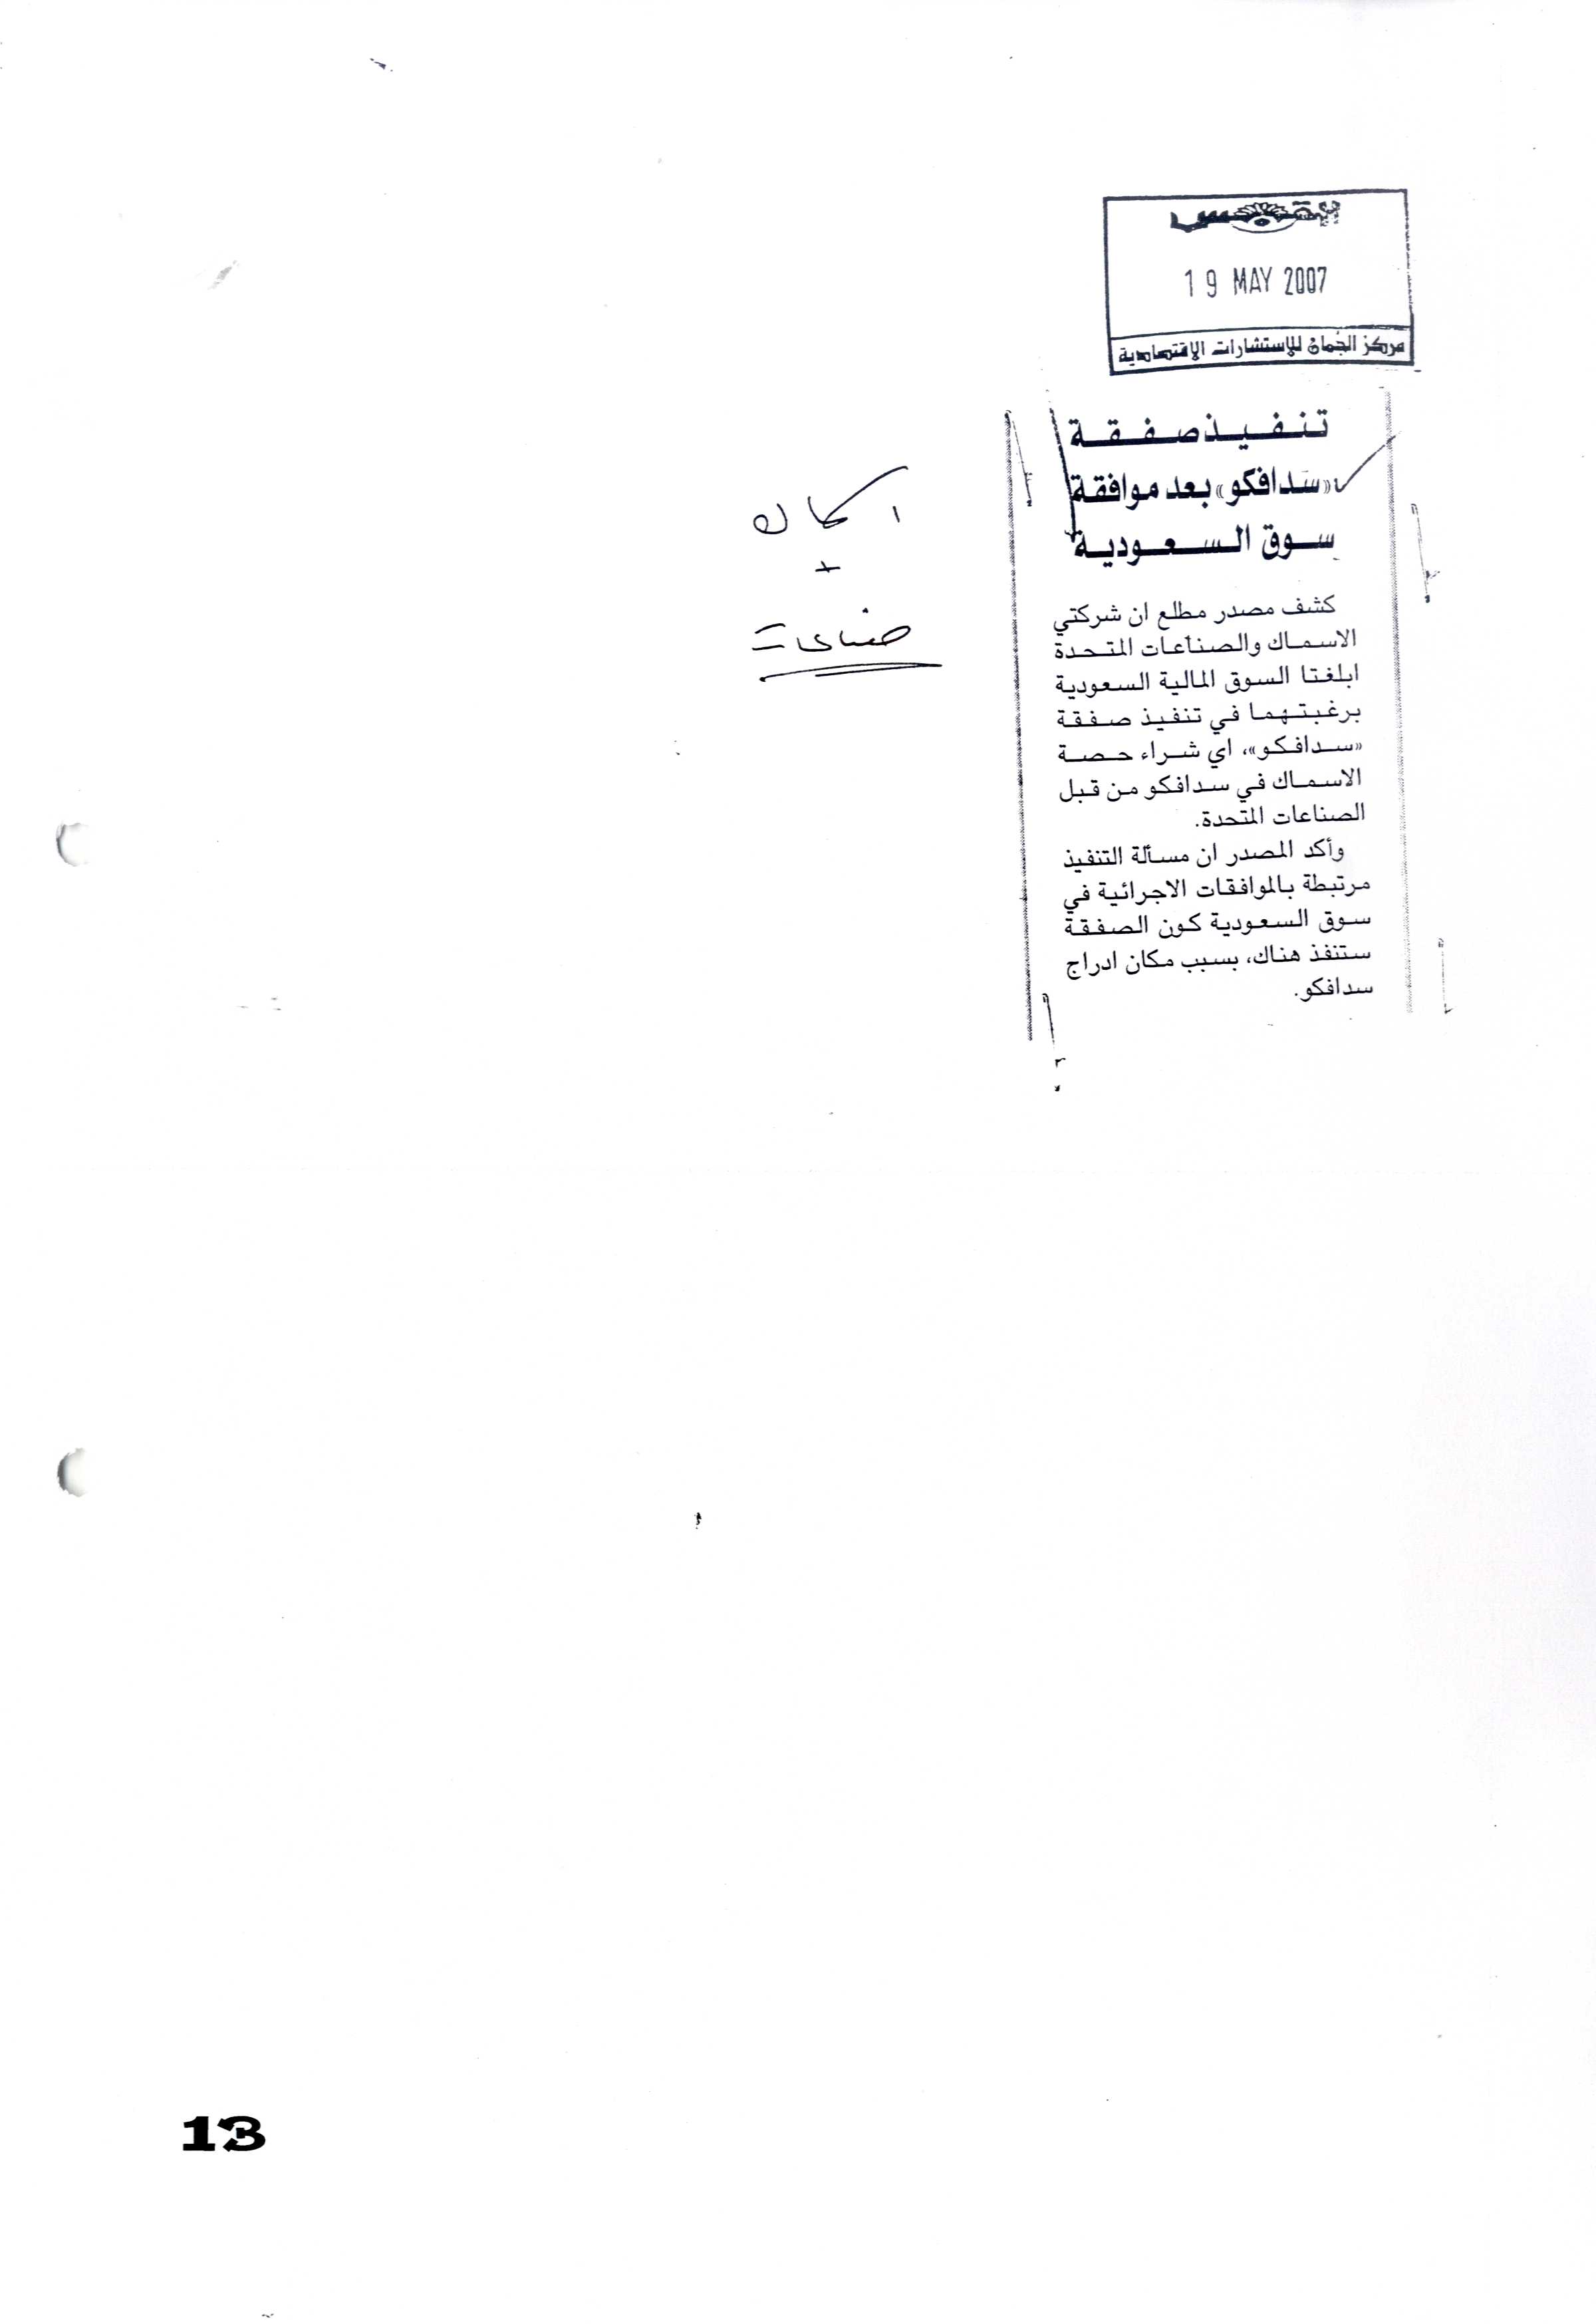 القبس
19 MAY 2007
مركز الجُمان للإستشارات الاقتصادية
تنفيذ صفقة
«سدافكو» بعد موافقة
سوق السعودية
كشف مصدر مطلع ان شركتي
الاسماك والصناعات المتحدة
ابلغتا السوق المالية السعودية
برغبتهما في تنفيذ صفقة
«سدافكو»، اي شراء حصة
الاسماك في سدافكو من قبل
الصناعات المتحدة.
وأكد المصدر ان مسألة التنفيذ
مرتبطة بالموافقات الاجرائية في
سوق السعودية كون الصفقة
ستنفذ هناك، بسبب مكان ادراج
سدافكو.
اسماك
+
صناعات
13